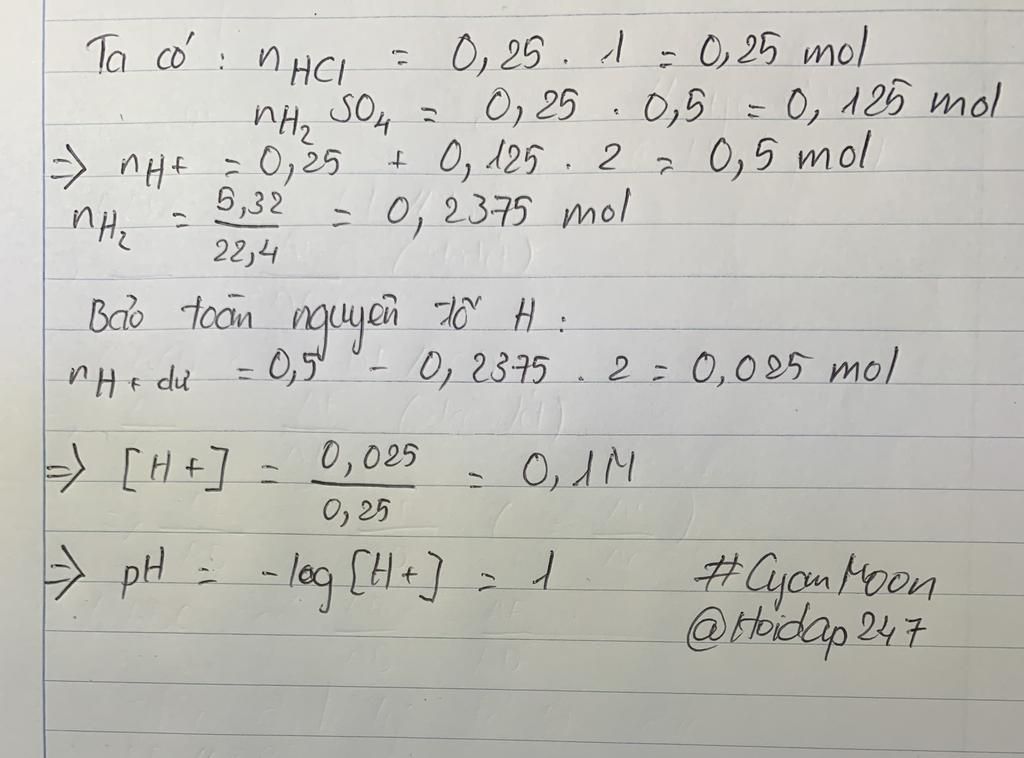 Ta có : nHCl = 0,25 . 1 = 0,25 mol
nH₂SO₄ = 0,25 . 0,5 = 0,125 mol
⇒ nH+ = 0,25 + 0,125 . 2 = 0,5 mol
nH₂ = 5,32/22,4 = 0,2375 mol
Bảo toàn nguyên tố H :
nH+ dư = 0,5 - 0,2375 . 2 = 0,025 mol
⇒ [H+] = 0,025/0,25 = 0,1M
⇒ pH = -log[H+] = 1
#CyanMoon
@Hoidap247